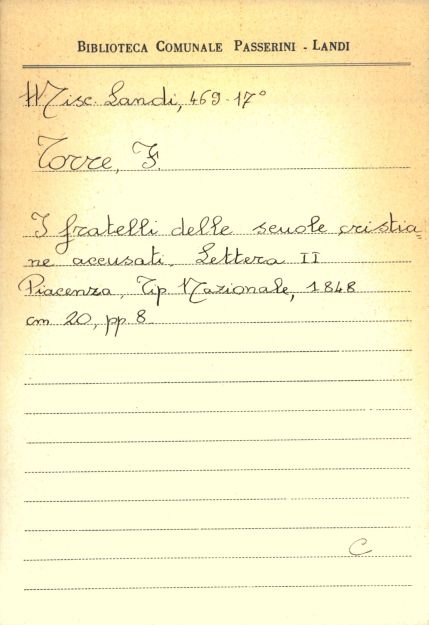 BIBLIOTECA COMUNALE PASSERINI - LANDI
Misc. Landi, 469-17°
Torre, F.
I fratelli delle scuole cristia=
ne accusati. Lettera II
Piacenza, Tip. Nazionale, 1848
cm 20, pp. 8
C